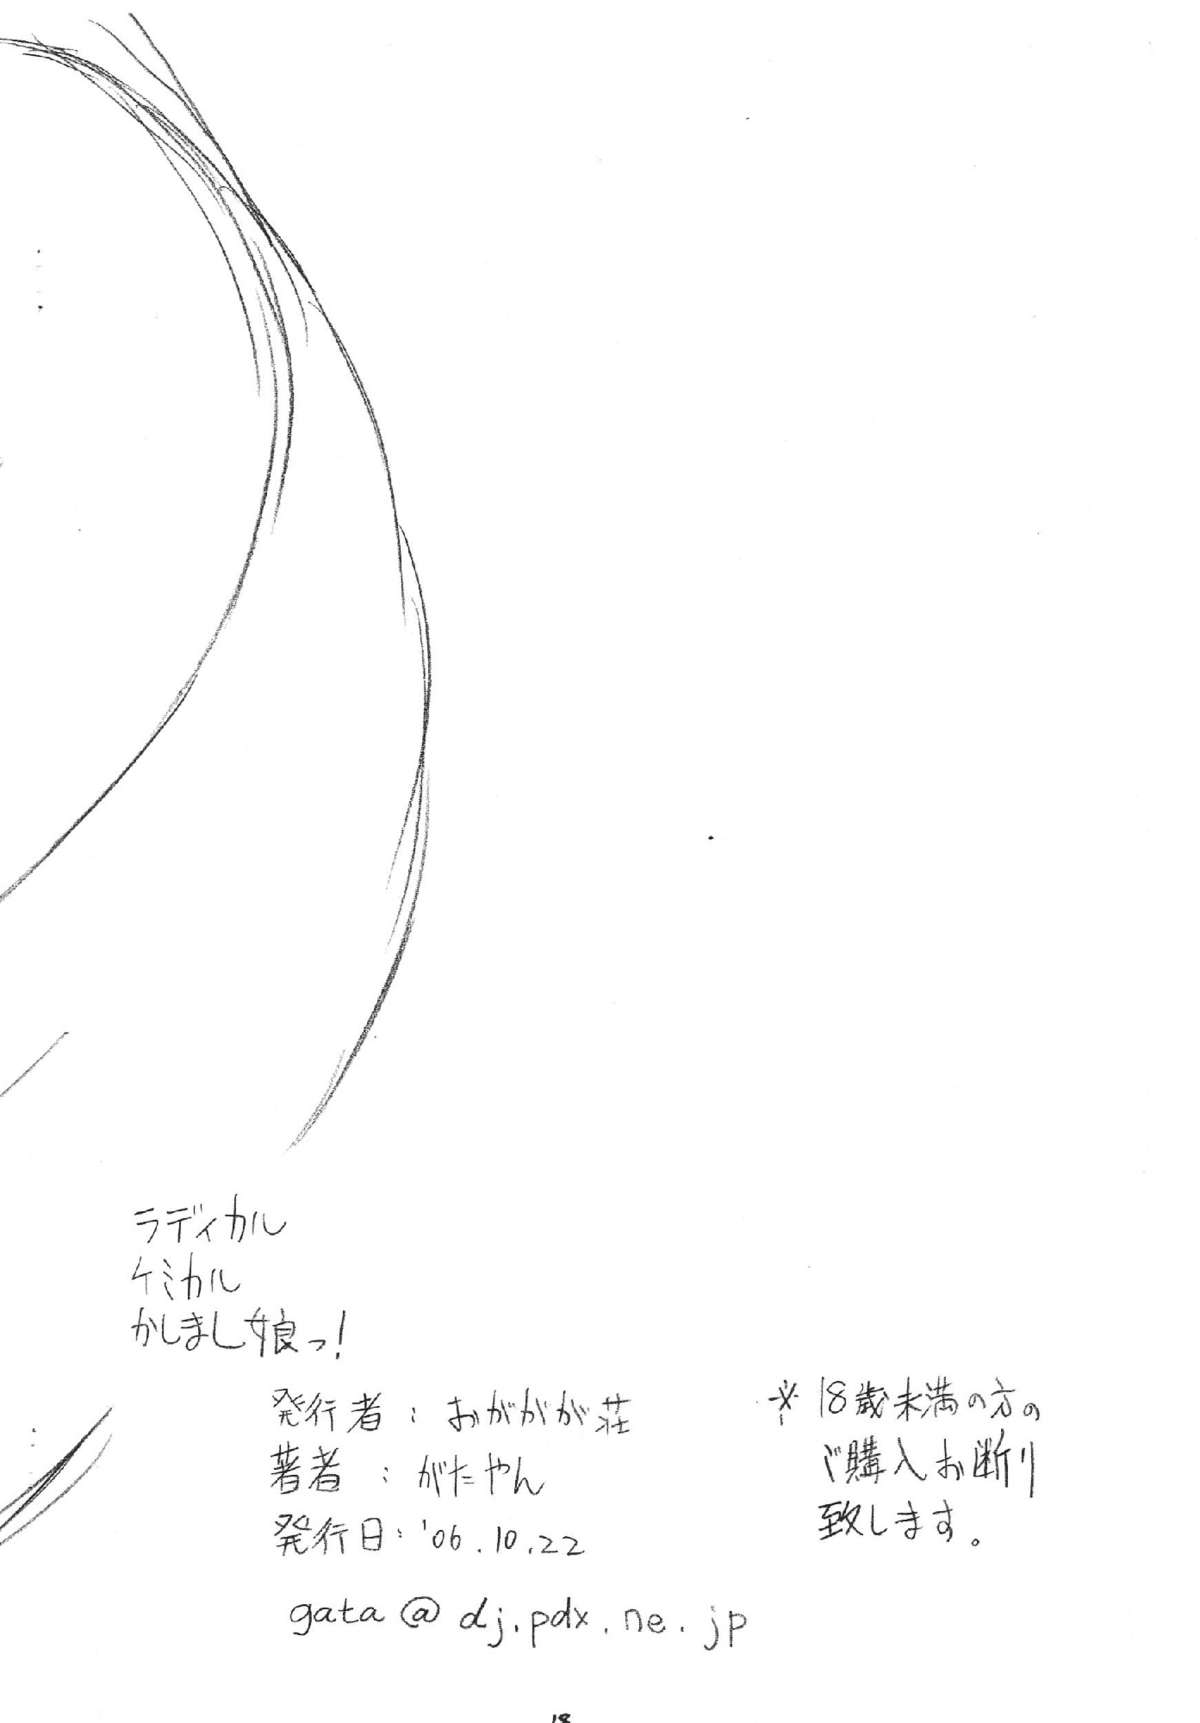 ラディカル
ケミカル
かしまし娘っ!
発行者:おがががが荘
著者:がたやん
発行日:'06.10.22
gata@dj.pdx.ne.jp
※18歳未満の方の
ご購入お断り
致します。
18